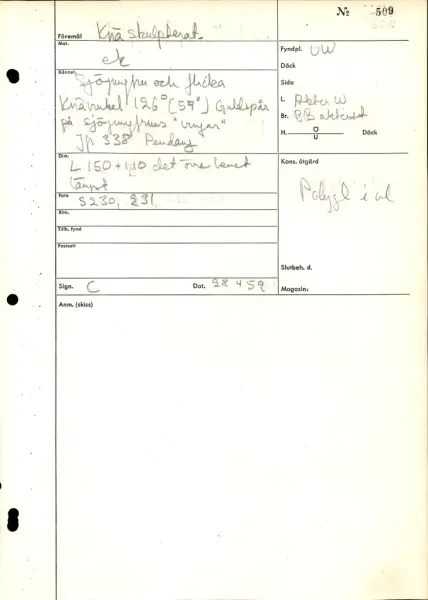 № 509
Föremål Knä skulpterat.
Mat. ek
Fyndpl. UW
Däck
Sida
Kännet. Sjöjungfru och flicka
Knävinkel 126° (54°) Guldspår
på sjöjungfruns "vingar"
Jfr 338 Pendang
L. Akter W
Br. BB akterut
H. Ö U Däck
Dim. L 150 + 110 det övre benet
längst
Kons. åtgärd
Polygl i ol
Foto S230, 231
Ritn.
Tillh. fynd
Fastsatt
Slutbeh. d.
Sign. C Dat. 28 4 59
Magasin:
Anm. (skiss)